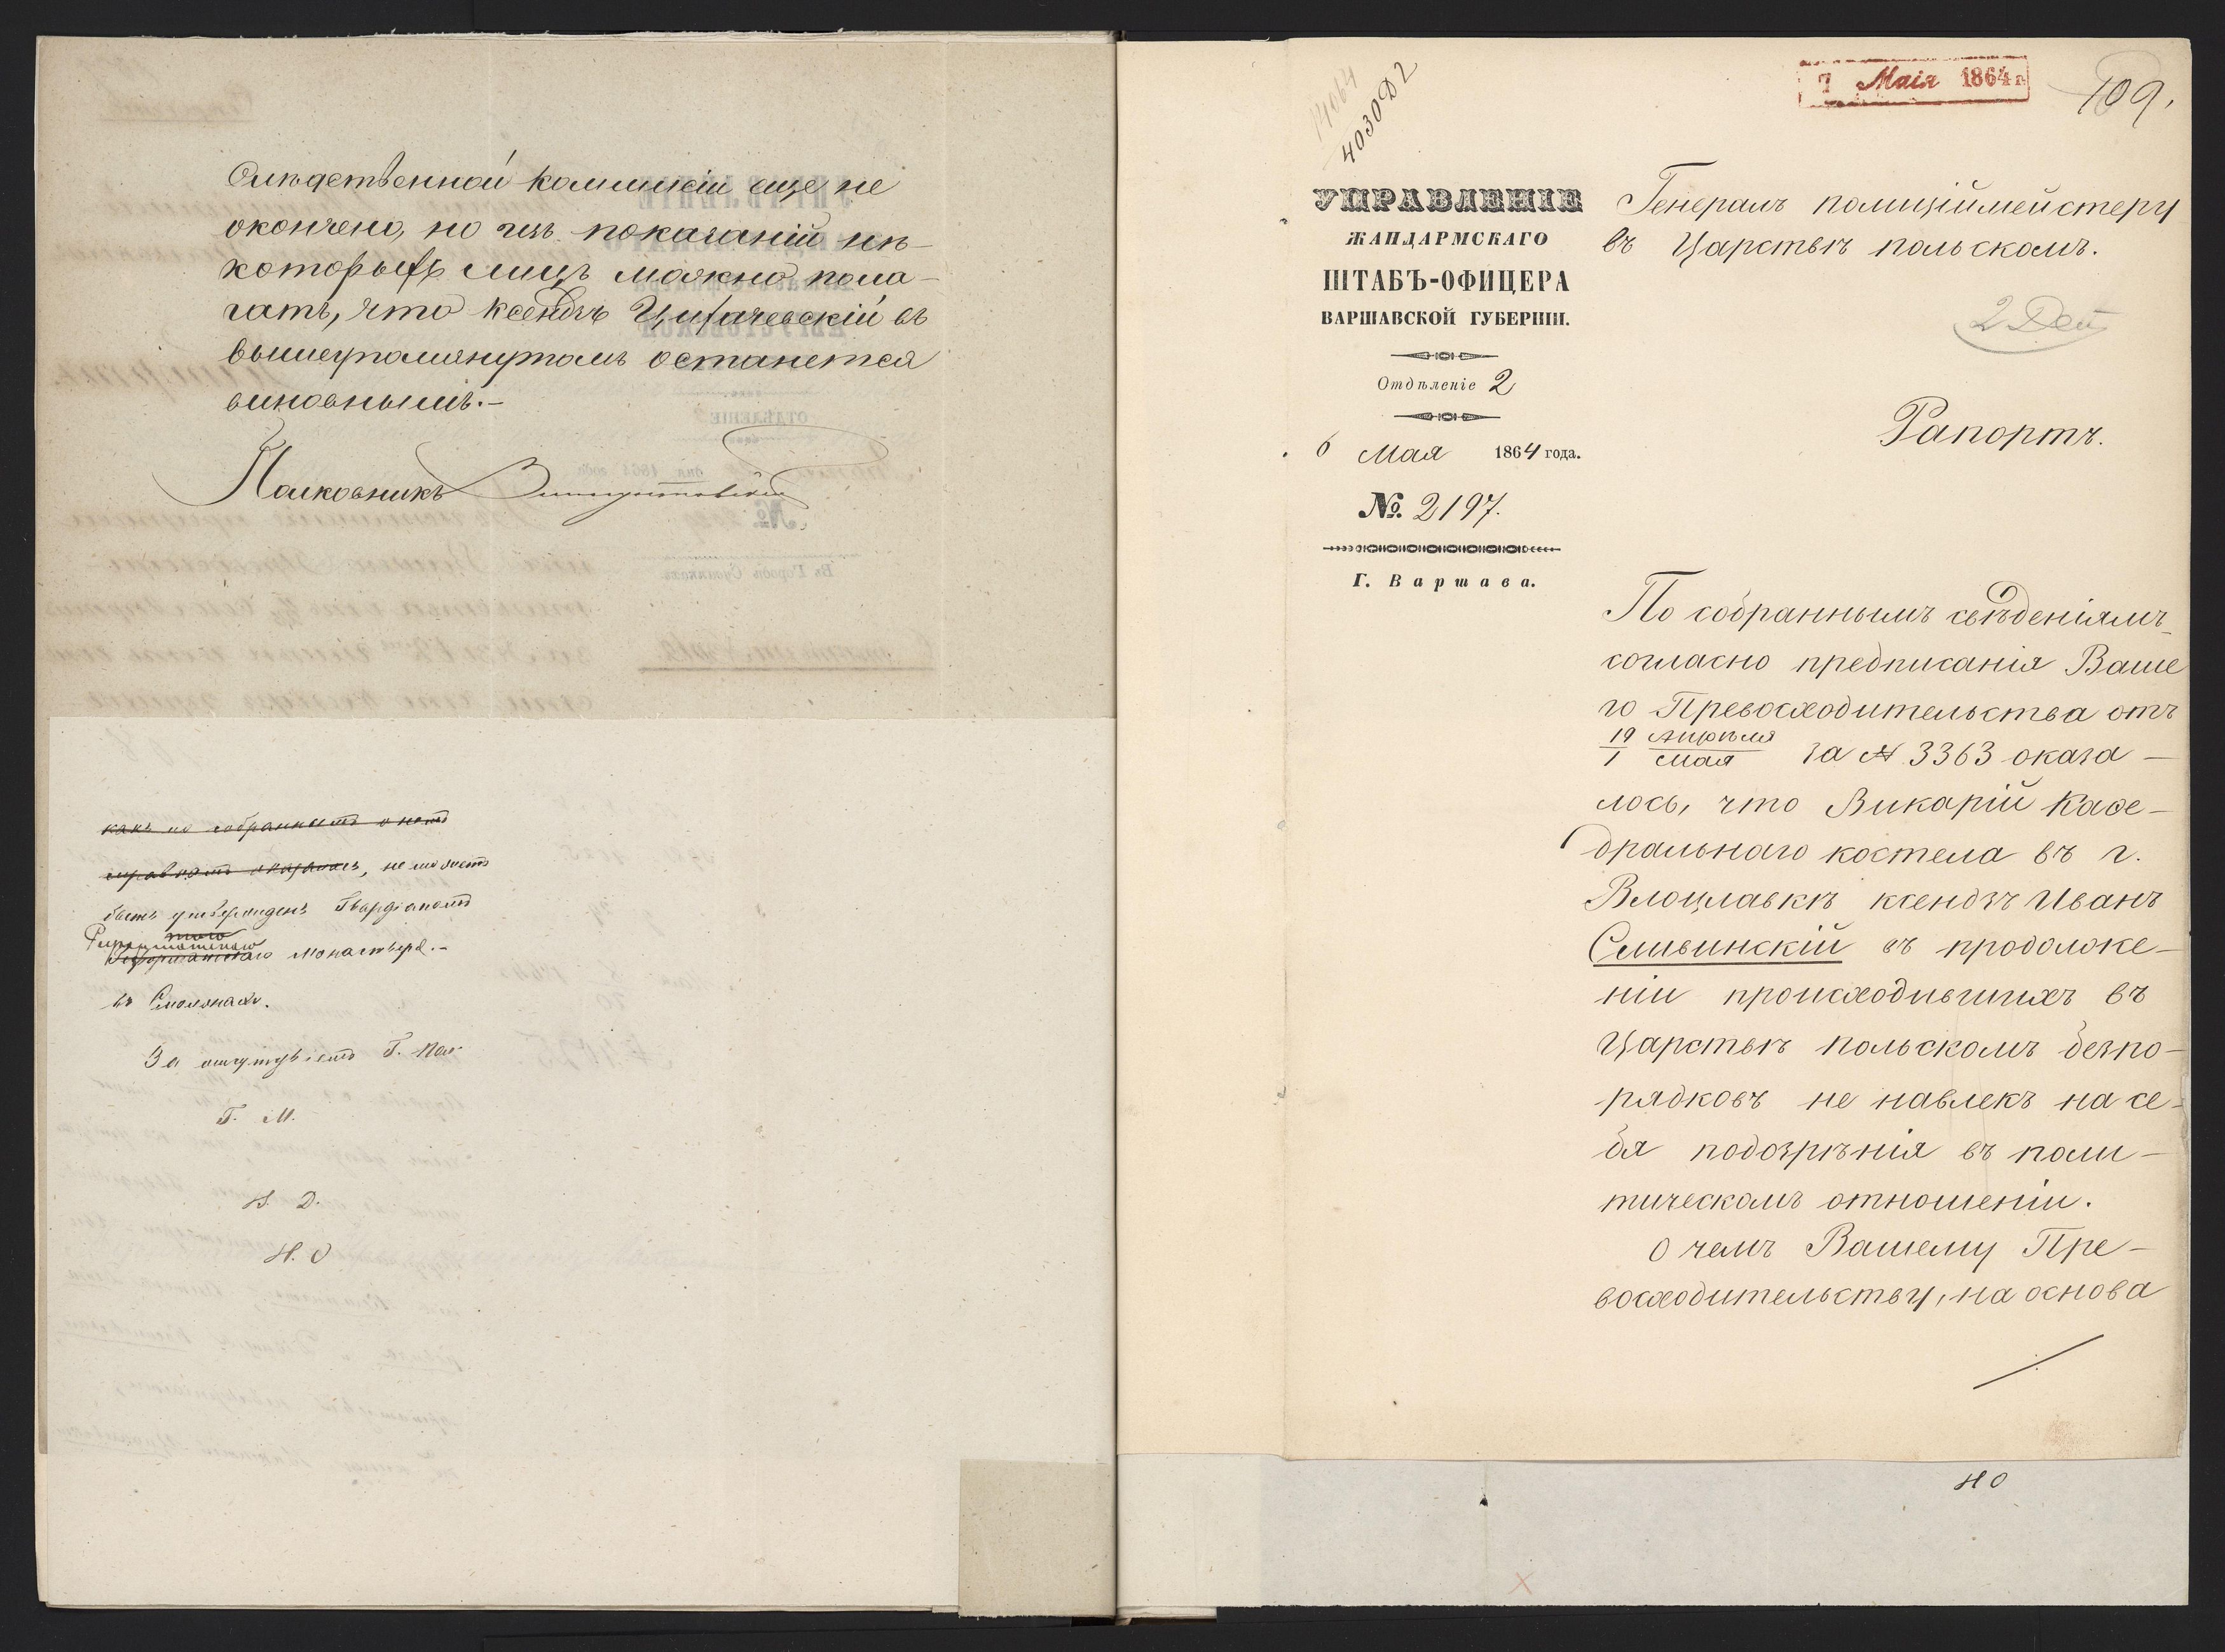 Слѣдственной коммисіи еще не
окончено, но изъ показаній нѣ-
которыхъ лицъ можно пола-
гать, что ксендзъ Цихачевскій въ
вышеупомянутомъ останется
виновнымъ.-
Полковникъ
какъ по собраннымъ о немъ
справкамъ оказалось, не можетъ
быть утвержденъ Гвардіаномъ
этого
Реформатскаго монастыря.-
въ Смолянахъ.
За отсутствіемъ Г. Пол.
Г. М.
Н. Д.
Н. О
7 Маія 1864 г.
109.
4030 Д 2
УПРАВЛЕНІЕ
ЖАНДАРМСКАГО
ШТАБЪ-ОФИЦЕРА
ВАРШАВСКОЙ ГУБЕРНІИ.
Отдѣленіе 2
6 Мая 1864 года.
№ 2197.
Г. Варшава.
Генералъ полиціймейстеру
въ Царствѣ польскомъ.
2 Деп
Рапортъ.
По собраннымъ свѣденіямъ
согласно предписанія Ваше
го Превосходительства отъ
19 Апрѣля / 1 Мая за № 3363 оказа-
лось, что Викарій Каѳе-
дральнаго костела въ г.
Влоцлавкѣ ксендзъ Иванъ
Сливинскій въ продолже-
ніи происходившихъ въ
Царствѣ польскомъ безпо-
рядковъ не навлекъ на се-
бя подозрѣнія въ поли-
тическомъ отношеніи.
О чемъ Вашему Пре-
восходительству, на основа
НО